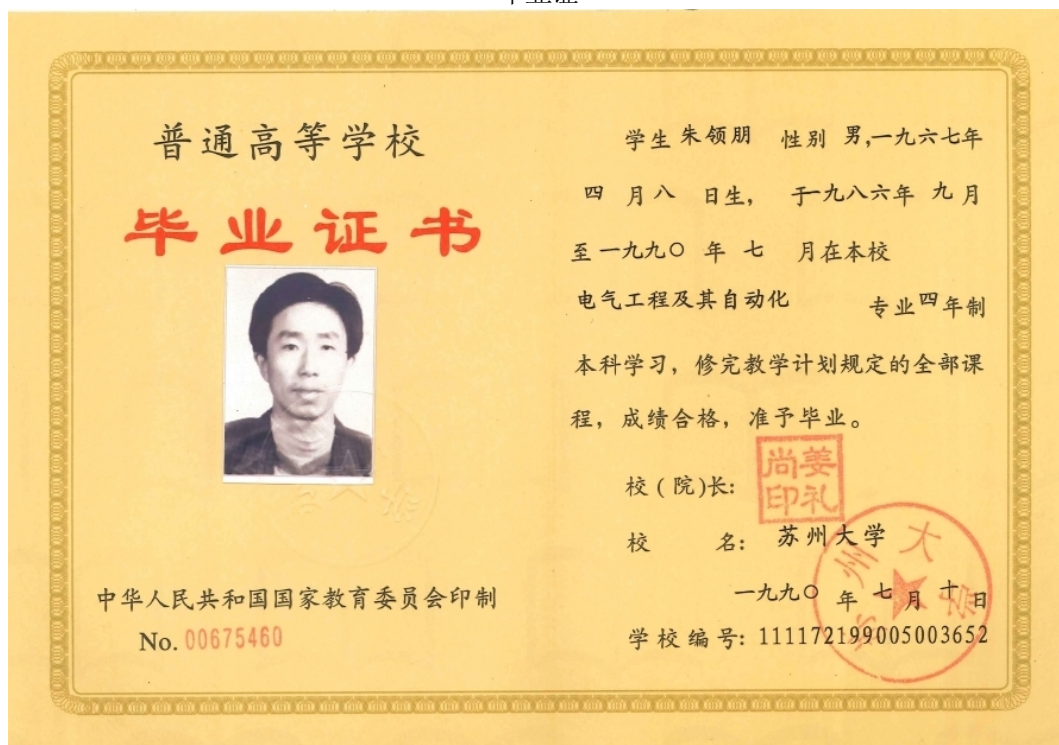 毕业证
普通高等学校
毕业证书
中华人民共和国国家教育委员会印制
No. 00675460
学生 朱领朋 性别 男,一九六七年
四 月八 日生, 于一九八六年 九月
至一九九〇 年 七 月在本校
电气工程及其自动化 专业四年制
本科学习, 修完教学计划规定的全部课
程, 成绩合格, 准予毕业。
校(院)长:
姜礼尚印
校 名: 苏州大学
苏州大学
一九九〇 年 七月 十日
学校编号: 111172199005003652